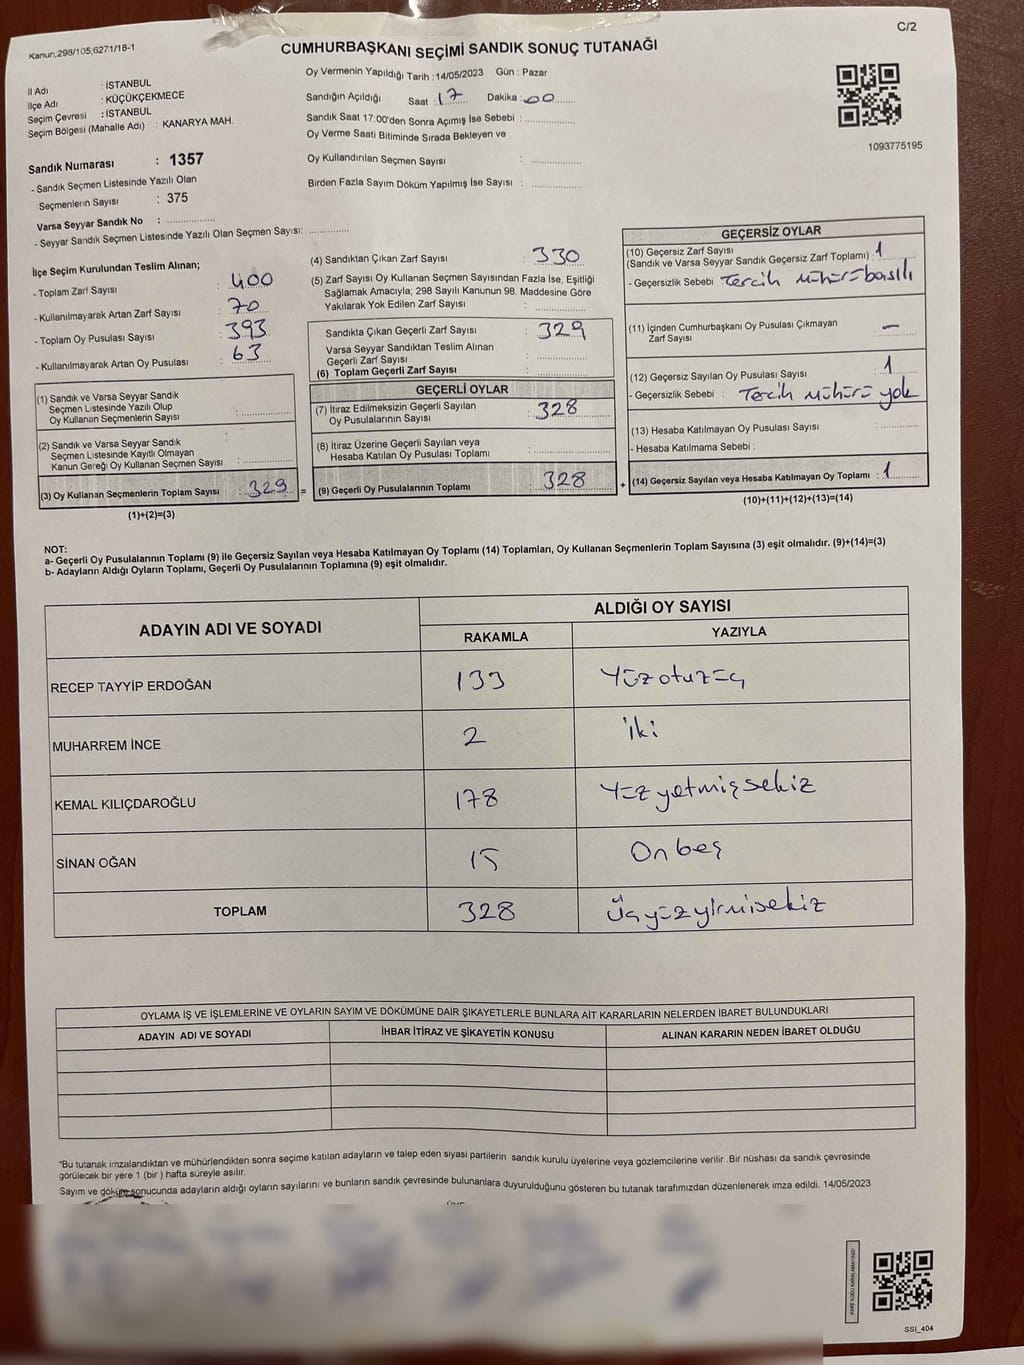 Kanun;298/105;6271/18-1
C/2
CUMHURBAŞKANI SEÇİMİ SANDIK SONUÇ TUTANAĞI
İl Adı : İSTANBUL
İlçe Adı : KÜÇÜKÇEKMECE
Seçim Çevresi : İSTANBUL
Seçim Bölgesi (Mahalle Adı) : KANARYA MAH.
Sandık Numarası : 1357
- Sandık Seçmen Listesinde Yazılı Olan
Seçmenlerin Sayısı : 375
Varsa Seyyar Sandık No :
- Seyyar Sandık Seçmen Listesinde Yazılı Olan Seçmen Sayısı:
Oy Vermenin Yapıldığı Tarih : 14/05/2023 Gün : Pazar
Sandığın Açıldığı Saat : 17 Dakika : 00
Sandık Saat 17:00'den Sonra Açımış İse Sebebi :
Oy Verme Saati Bitiminde Sırada Bekleyen ve
Oy Kullandırılan Seçmen Sayısı :
Birden Fazla Sayım Döküm Yapılmış İse Sayısı :
1093775195
İlçe Seçim Kurulundan Teslim Alınan;
- Toplam Zarf Sayısı : 400
- Kullanılmayarak Artan Zarf Sayısı : 70
- Toplam Oy Pusulası Sayısı : 393
- Kullanılmayarak Artan Oy Pusulası : 63
(1) Sandık ve Varsa Seyyar Sandık
Seçmen Listesinde Yazılı Olup
Oy Kullanan Seçmenlerin Sayısı :
(2) Sandık ve Varsa Seyyar Sandık
Seçmen Listesinde Kayıtlı Olmayan
Kanun Gereği Oy Kullanan Seçmen Sayısı :
(3) Oy Kullanan Seçmenlerin Toplam Sayısı : 329 =
(1)+(2)=(3)
(4) Sandıktan Çıkan Zarf Sayısı : 330
(5) Zarf Sayısı Oy Kullanan Seçmen Sayısından Fazla İse, Eşitliği
Sağlamak Amacıyla; 298 Sayılı Kanunun 98. Maddesine Göre
Yakılarak Yok Edilen Zarf Sayısı :
Sandıkta Çıkan Geçerli Zarf Sayısı : 329
Varsa Seyyar Sandıktan Teslim Alınan
Geçerli Zarf Sayısı :
(6) Toplam Geçerli Zarf Sayısı :
GEÇERLİ OYLAR
(7) İtiraz Edilmeksizin Geçerli Sayılan
Oy Pusulalarının Sayısı : 328
(8) İtiraz Üzerine Geçerli Sayılan veya
Hesaba Katılan Oy Pusulası Toplamı :
(9) Geçerli Oy Pusulalarının Toplamı : 328 +
GEÇERSİZ OYLAR
(10) Geçersiz Zarf Sayısı
(Sandık ve Varsa Seyyar Sandık Geçersiz Zarf Toplamı) : 1
- Geçersizlik Sebebi : Tercih mühürü basılı
(11) İçinden Cumhurbaşkanı Oy Pusulası Çıkmayan
Zarf Sayısı : –
(12) Geçersiz Sayılan Oy Pusulası Sayısı : 1
- Geçersizlik Sebebi : Tercih mühürü yok
(13) Hesaba Katılmayan Oy Pusulası Sayısı :
- Hesaba Katılmama Sebebi :
(14) Geçersiz Sayılan veya Hesaba Katılmayan Oy Toplamı : 1
(10)+(11)+(12)+(13)=(14)
NOT:
a- Geçerli Oy Pusulalarının Toplamı (9) ile Geçersiz Sayılan veya Hesaba Katılmayan Oy Toplamı (14) Toplamları, Oy Kullanan Seçmenlerin Toplam Sayısına (3) eşit olmalıdır. (9)+(14)=(3)
b- Adayların Aldığı Oyların Toplamı, Geçerli Oy Pusulalarının Toplamına (9) eşit olmalıdır.
ADAYIN ADI VE SOYADI
ALDIĞI OY SAYISI
RAKAMLA YAZIYLA
RECEP TAYYİP ERDOĞAN 133 Yüzotuzüç
MUHARREM İNCE 2 iki
KEMAL KILIÇDAROĞLU 178 Yüzyetmişsekiz
SİNAN OĞAN 15 Onbeş
TOPLAM 328 Üçyüzyirmisekiz
OYLAMA İŞ VE İŞLEMLERİNE VE OYLARIN SAYIM VE DÖKÜMÜNE DAİR ŞİKAYETLERLE BUNLARA AİT KARARLARIN NELERDEN İBARET BULUNDUKLARI
ADAYIN ADI VE SOYADI İHBAR İTİRAZ VE ŞİKAYETİN KONUSU ALINAN KARARIN NEDEN İBARET OLDUĞU
"Bu tutanak imzalandıktan ve mühürlendikten sonra seçime katılan adayların ve talep eden siyasi partilerin sandık kurulu üyelerine veya gözlemcilerine verilir .Bir nüshası da sandık çevresinde
görülecek bir yere 1 (bir ) hafta süreyle asılır.
Sayım ve döküm sonucunda adayların aldığı oyların sayılarını ve bunların sandık çevresinde bulunanlara duyurulduğunu gösteren bu tutanak tarafımızdan düzenlenerek imza edildi. 14/05/2023
KARE KODU KARALAMAYINIZ!
SSI_404